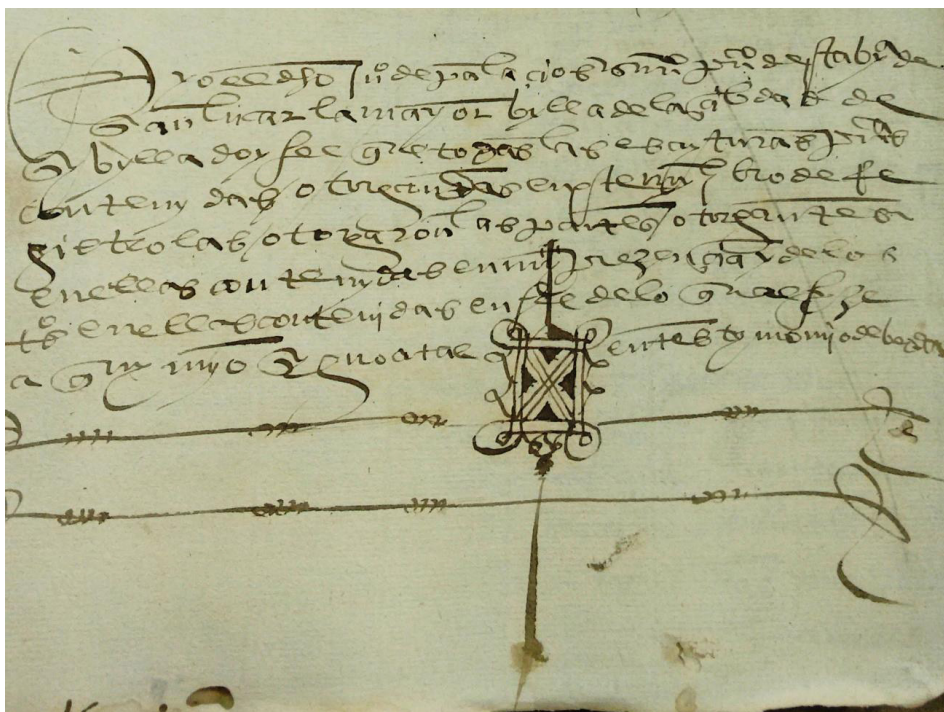 yo el dho Ju° de palaçios sno puco desta billa de
san lucar la mayor billa de la çibdad de
sybylla doy fee que todas las escrituras pucas
contenydas y otorgadas en este my libro de re
gistro las otorgaron las partes otorgantes
en ellas contenydas en my presençia y de los
tos en ellas contenidas en fee de lo qual fize
a quy myo syno a tal en testimonio de verdad